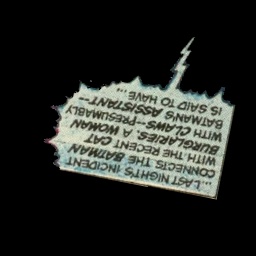 ...LAST NIGHT'S INCIDENT
CONNECTS THE BATMAN
WITH THE RECENT CAT
BURGLARIES. A WOMAN
WITH CLAWS--PRESUMABLY
BATMAN'S ASSISTANT--
IS SAID TO HAVE...